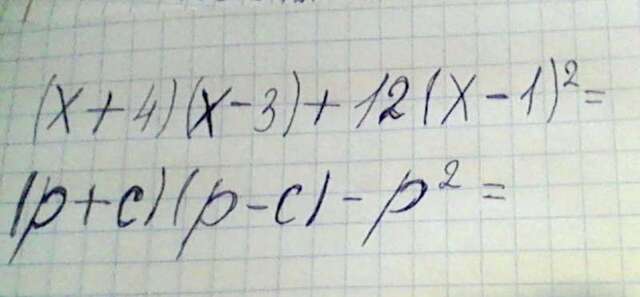 (x+4)(x-3)+12(x-1)²=
(p+c)(p-c)-p²=